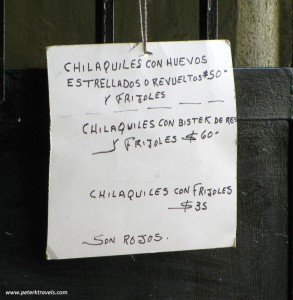 CHILAQUILES CON HUEVOS
ESTRELLADOS O REVUELTOS $50-
Y FRIJOLES
CHILAQUILES CON BISTEK DE RES
Y FRIJOLES $60-
CHILAQUILES CON FRIJOLES
$35
SON ROJOS.
www.peterktravels.com